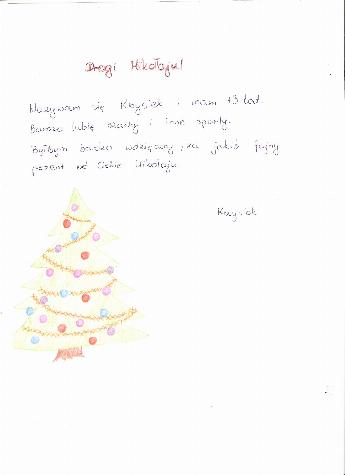 Drogi Mikołaju!
Nazywam się Krzysiek i mam 13 lat.
Bardzo lubię narty i inne sporty.
Byłbym bardzo wdzięczny za jakiś fajny
prezent od Ciebie Mikołaju
Krzysiek